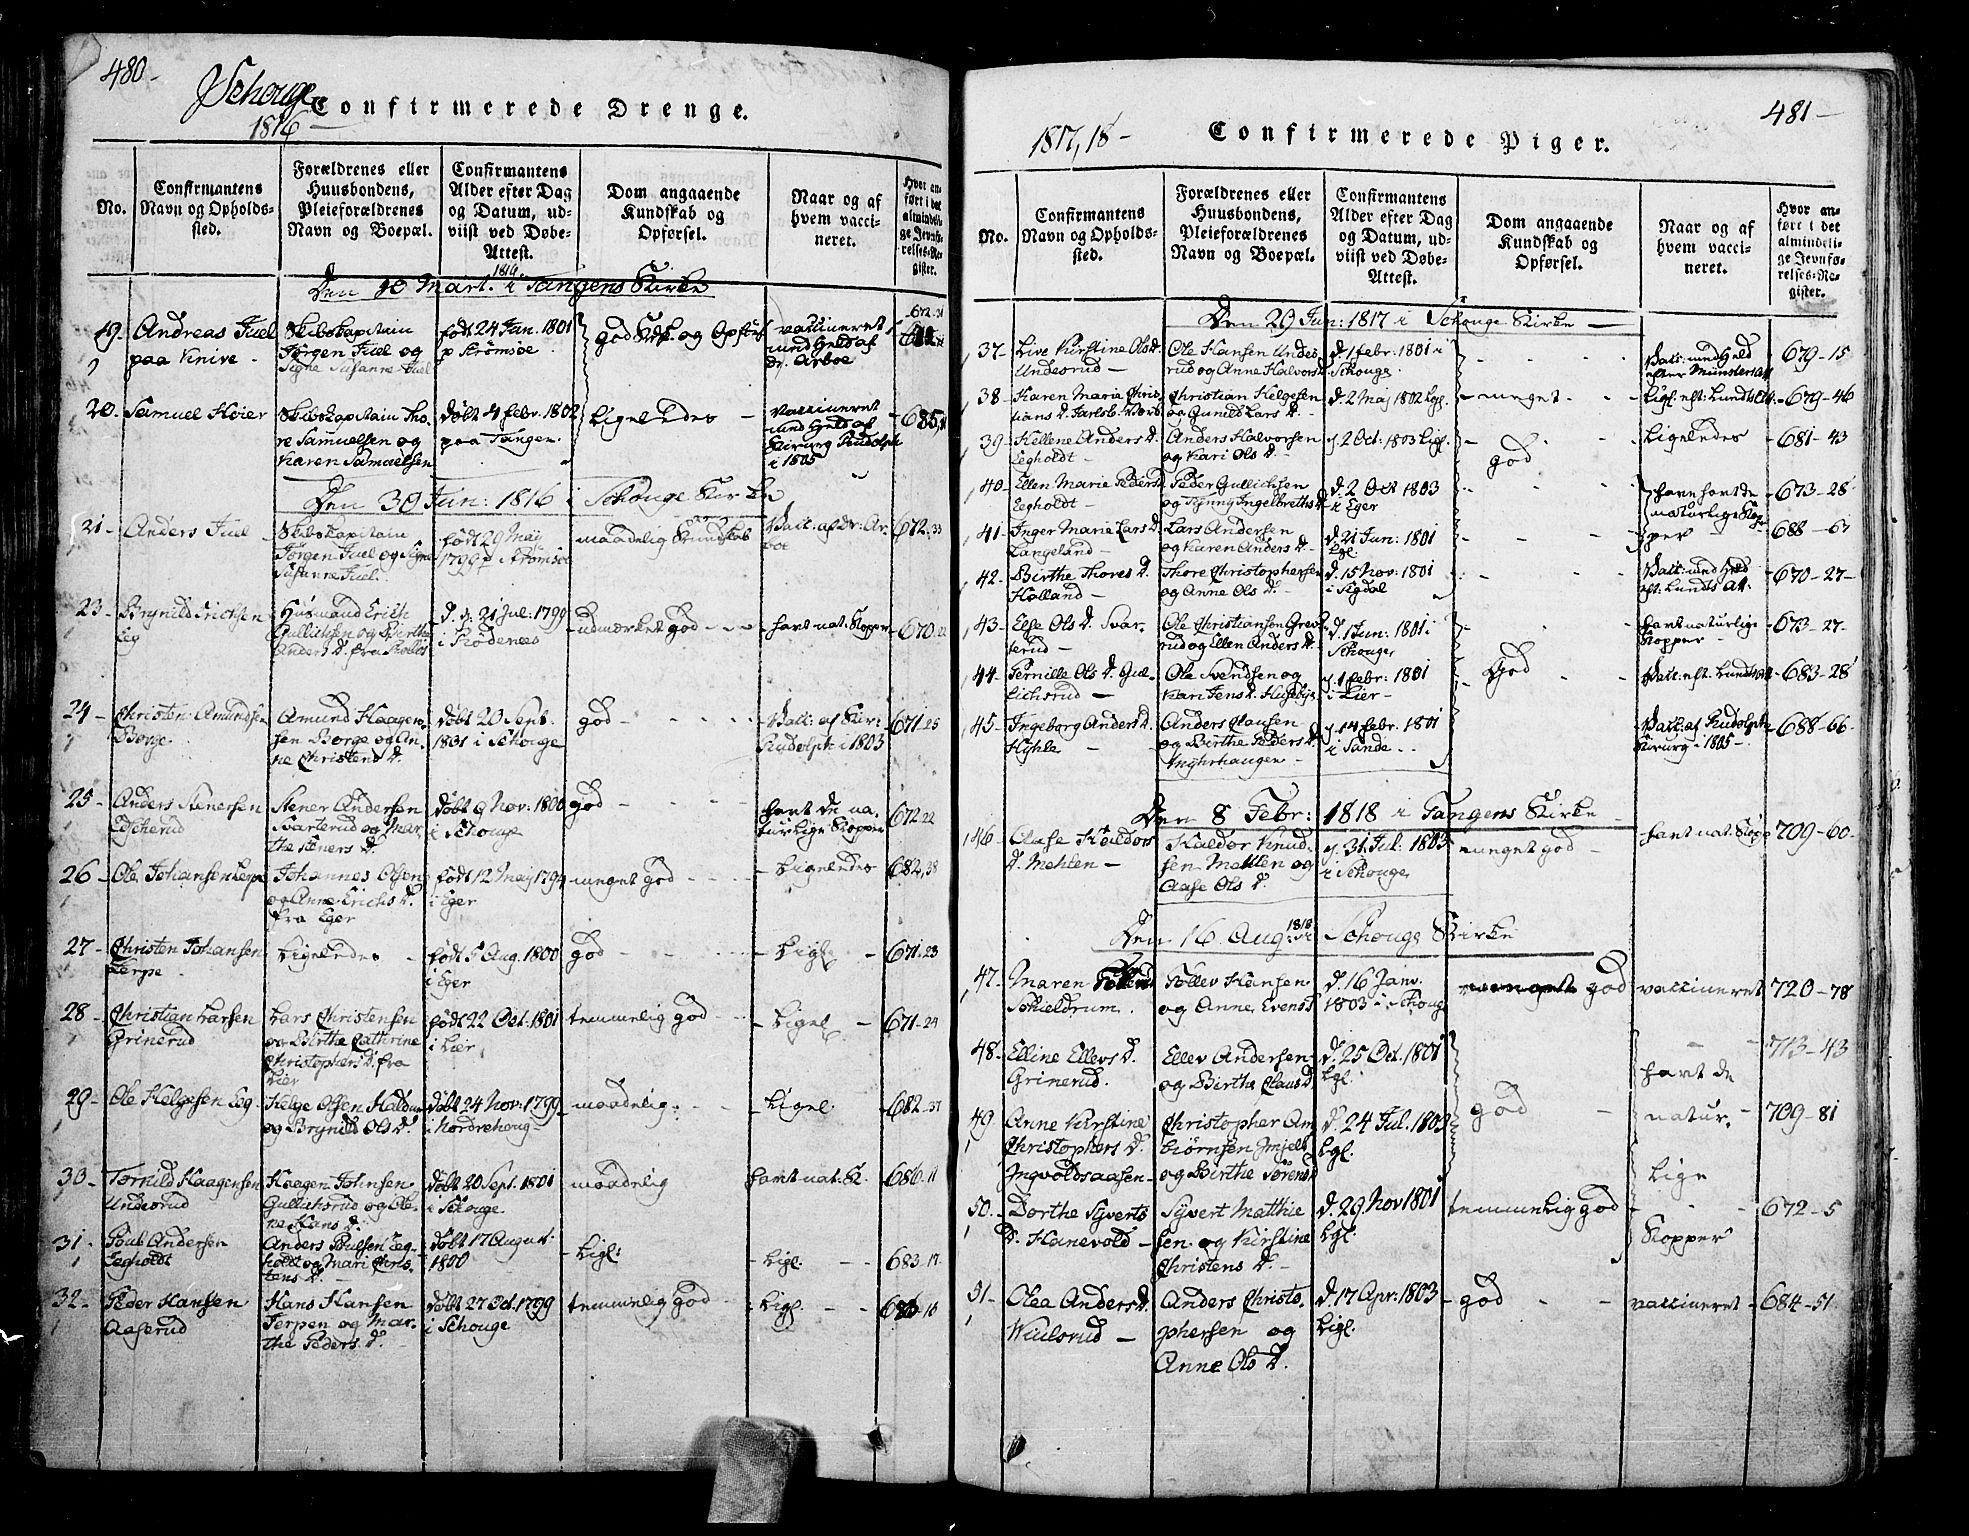 480-
Schouge
Confirmerede Drenge.
1816
No.
Confirmantens
Navn og Opholds-
sted.
Forældrenes eller
Huusbondens,
Pleieforældrenes
Navn og Boepæl.
Confirmantens
Alder efter Dag
og Datum, ud-
viist ved Døbe-
Attest.
Dom angaaende
Kundskab og
Opførsel.
Naar og af
hvem vacci-
neret.
Hvor an-
ført i det
almindeli-
ge Jevnfø-
relses-Re-
gister.
Den 10 Mart. 1816 i Tangens Kirke
19-
Andreas Juel
paa Knive -
Skibskapitain
Jørgen Juel og
Signe Susanne Juel
født 24 Jan. 1801
p Strømsøe
god Kdsk. og Opførs
vaccineret
med Held af
Dr. Arboe
672.31
20-
Samuel Høier
Skibskapitain Tho-
re Samuelsen og
Karen Samuelsen
døbt 4 febr. 1802
paa Tangen.
Ligeledes -
vaccineret
med Held af
Kirurg Rudolph
i 1805
685,
Den 30 Jun: 1816 i Schouge Kirke
21-
Anders Juel
Skibskapitain
Jørgen Juel og Signe
Susanne Juel.
født 29 May
1799 p Strømsøe
maadelig Kundskab
Vacc: af Dr: Ar-
boe
672.33
23-
Brynild Erichsen
Eeg
Huusmand Erich
Gullichsen og Birthe
Anders D. fra
D. f: 21 Jul: 1799
i Rødenæs
udmærket god - -
havt nat. Kopper
670.22
24-
Christen Amundsen
Borge
Amund Haagen-
sen Borge og An-
ne Christens D.
døbt 20 Sept.
1801 i Schouge
god - - - -
Vacc: af Kir:
Rudolph i 1803
671.25
25
Anders Stenersen
Stener Andersen
Svarterud og Mar-
the Steners D.
døbt 9 Nov: 1800
i Schouge
god - - -
havt de na-
turlige Kopper
672.22
26-
Ole Johansen Lerpe
Johannes Olsen
og Anne Erichs D.
fra Eger
født 12 May 1794
i Eger
meget god - - -
Ligeledes
682.38
27-
Christen Johansen
Lerpe
Ligeledes -
født 5 Aug. 1800
i Eger
god - - -
Ligl.
671.23
28-
Christian Larsen
Grinerud
Lars Christensen
og Birthe Cathrine
Christophers D. fra
Lier
født 22 Oct. 1801
i Lier
temmelig god - -
Ligel. -
671-24
29-
Ole Helgesen Eeg
Helge Olsen
og Brynild Ols D.
døbt 24 Nov: 1799
i Nordrehoug -
maadelig - -
Ligel.
682.37
30-
Tornild Haagensen
Undesrud
Haagen Johnsen
Gulliksrud og Ole-
ne Hans D.
døbt 20 Sept. 1801
i Schouge
maadelig
havt nat. K.
686.11
31-
Poul Andersen
Eegholdt
Anders Poulsen Eeg-
holdt og Mari Chris-
tens D. -
døbt 17 August.
1800
- Ligl:
Ligl. - -
683.17
32-
Peder Hansen
Aaserud
Hans Hansen
Jerpen og Mar-
the Peders D.
døbt 27 Oct. 1799
i Schouge
temmelig god
Ligl. - -
686-10
481-
1817, 18-
Confirmerede Piger.
No.
Confirmantens
Navn og Opholds-
sted.
Forældrenes eller
Huusbondens,
Pleieforældrenes
Navn og Boepæl.
Confirmantens
Alder efter Dag
og Datum, ud-
viist ved Døbe-
Attest.
Dom angaaende
Kundskab og
Opførsel.
Naar og af
hvem vacci-
neret.
Hvor an-
ført i det
almindeli-
ge Jevnfø-
relses-Re-
gister.
Den 29 Jun: 1817 i Schouge Kirke -
37-
Live Kirstine Ols D.
Undesrud -
Ole Hansen Undes-
rud og Anne Halvors D.
d. 1 febr: 1801 i
Schouge.
- - - -
Vacc: med Held
efter Munsters Att
679-15
38-
Karen Maria Chris-
tians D. Jarlsb. Værk
Christian Helgesen
og Gunild Lars D. -
d. 2 Maj 1802 Lgl.
- meget - -
Ligl. eft: Lundts Att.
679-46
39-
Hellene Anders D.
Eegholdt -
Anders Halvorsen
og Kari Ols D. -
d. 2 Oct: 1803 Ligl.
god
Ligeledes
681-43
40-
Ellen Marie Peders D.
Eegholdt -
Peder Gullichsen
og Ingelbreths D.
d. 2 Oct 1803
i Eger
have havt de
naturlige Kop-
per -
673-28
41-
Inger Marie Lars D.
Langeland -
Lars Andersen
og Karen Anders D. -
d. 21 Jun: 1801
Lgl.
- - -
688-67
42-
Birthe Thores D.
Holland -
Thore Christophersen
og Anne Ols D. -
d. 15 Nov: 1801
i Sigdal
Vacc: med Held
eft: Lundts Att.
670-27-
43-
Else Ols D. Svar-
terud -
Ole Christiansen Grev-
rud og Ellen Anders D.
d. 1 Jun: 1801 i
Schouge
havt naturlige
Kopper -
673-27-
44-
Pernille Ols D. Gul-
lichsrud -
Ole Svendsen og
Kari Jens D. Huseby
d. 1 febr: 1801
i Lier -
God
Vacc. eft. Lundts Att
683-28
45-
Ingeborg Anders D.
Hyhle -
Anders Hansen
og Birthe Peders D.
d. 14 febr. 1801
i Sande - -
Vacc: af Rudolph
Kirurg - 1805 -
688-66
Den 8 Febr: 1818 i Tangens Kirke -
46-
Aase Haldors
D. Mehlen -
Haldor Knud-
sen Mehlen og
Aase Ols D.
d. 31 Jul: 1803
i Schouge
meget god -
havt nat: Kopp
709-60-
Den 16 Aug: 1818 i Schouge Kirke
47-
Maren
Schieldrum.
Tollev Hansen
og Anne Evens D
d. 16 Janv.
1803 i Schoug
god
vaccineret
720-78
48-
Elline Ellevs D.
Grinerud.
Ellev Andersen-
og Birthe Claus D
d. 25 Oct. 1801
Lgl.
713-43
god
havt de
natur.
Lige
Kopper
49
Anne Kirstine
Christophers D.
Ingvoldsaasen-
Christopher Am-
biørnsen
og Birthe Sørens D
d. 24 Jul. 1803
Lgl.
709-81
50-
Dorthe Syverts
D. Hanevold -
Syvert Matthie-
sen og Kirstine
Christens D. -
d. 29 Nov 1801
Lgl.
temmelig god
672-5
51-
Olea Anders D.
Wiulsrud -
Anders Christo-
phersen og
Anne Ols D.
d. 17 Apr: 1803
Ligl.
- god - -
vaccineret
684-51